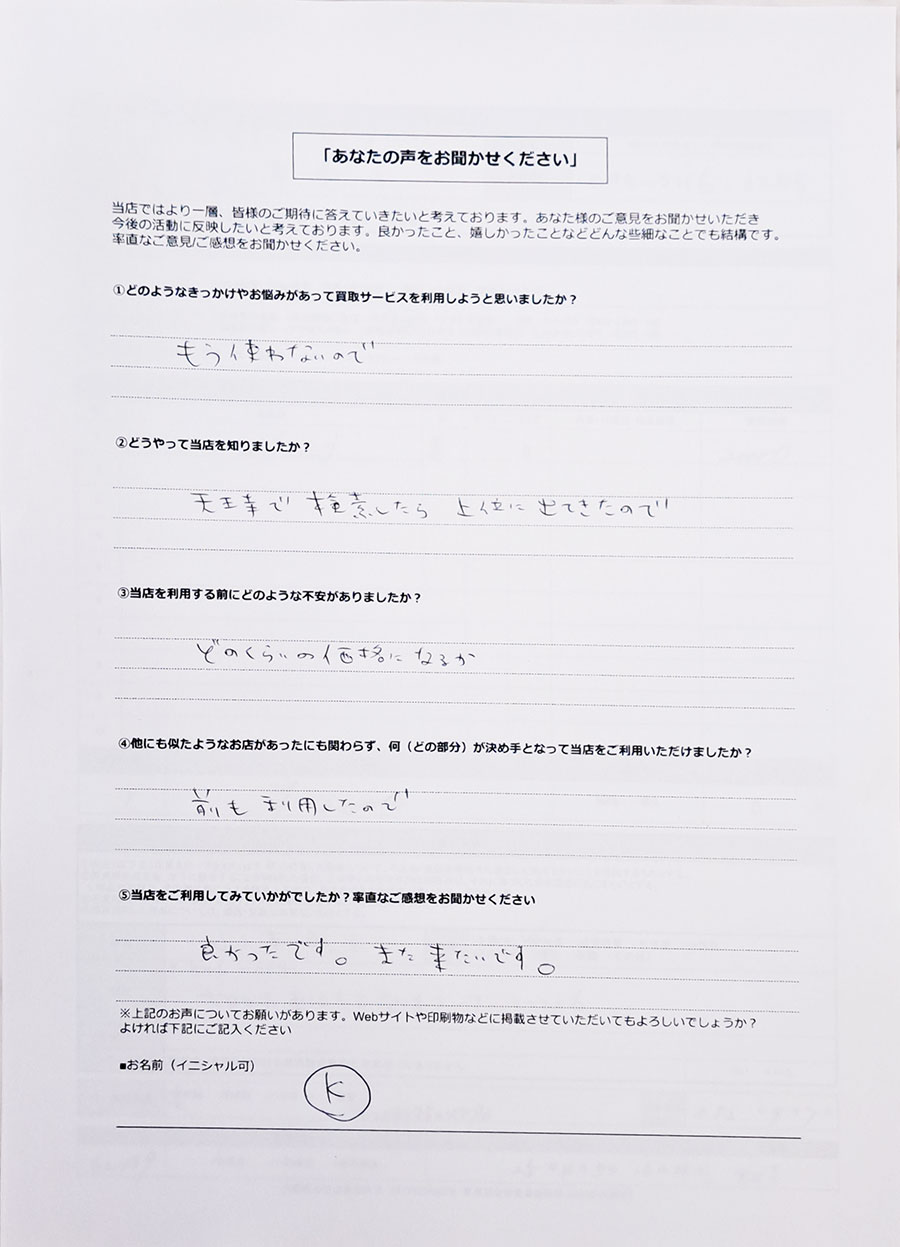 「あなたの声をお聞かせください」
当店ではより一層、皆様のご期待に答えていきたいと考えております。あなた様のご意見をお聞かせいただき
今後の活動に反映したいと考えております。良かったこと、嬉しかったことなどどんな些細なことでも結構です。
率直なご意見/ご感想をお聞かせください。
①どのようなきっかけやお悩みがあって買取サービスを利用しようと思いましたか？
もう使わないので
②どうやって当店を知りましたか？
天王寺で 検索したら 上位に出てきたので
③当店を利用する前にどのような不安がありましたか？
どのくらいの価格になるか
④他にも似たようなお店があったにも関わらず、何（どの部分）が決め手となって当店をご利用いただけましたか？
前も利用したので
⑤当店をご利用してみていかがでしたか？率直なご感想をお聞かせください
良かったです。また来たいです。
※上記のお声についてお願いがあります。Webサイトや印刷物などに掲載させていただいてもよろしいでしょうか？
よければ下記にご記入ください
■お名前（イニシャル可）
K